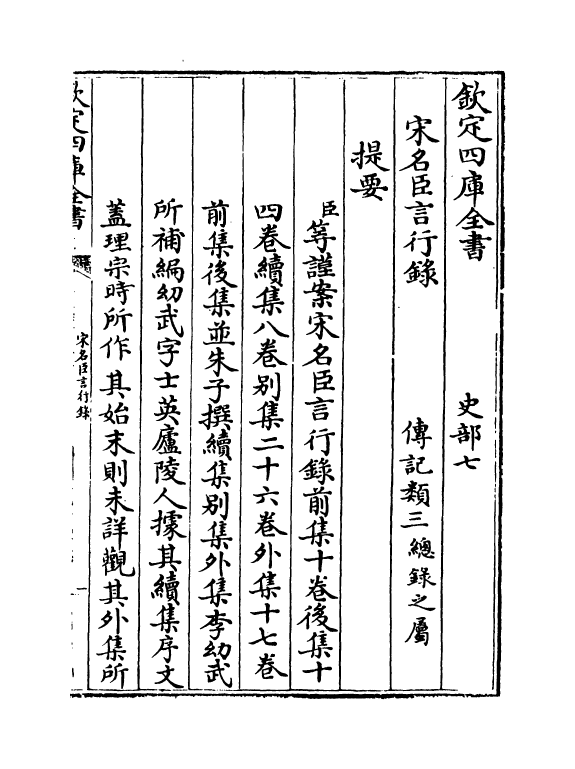 欽定四庫全書　史部七
宋名臣言行錄　傳記類三總錄之屬
提要
臣等謹案宋名臣言行錄前集十卷後集十
四卷續集八卷别集二十六卷外集十七卷
前集後集並朱子撰續集别集外集李幼武
所補編幼武字士英廬陵人據其續集序文
蓋理宗時所作其始末則未詳觀其外集所
欽定四庫全書
宋名臣言行錄
一